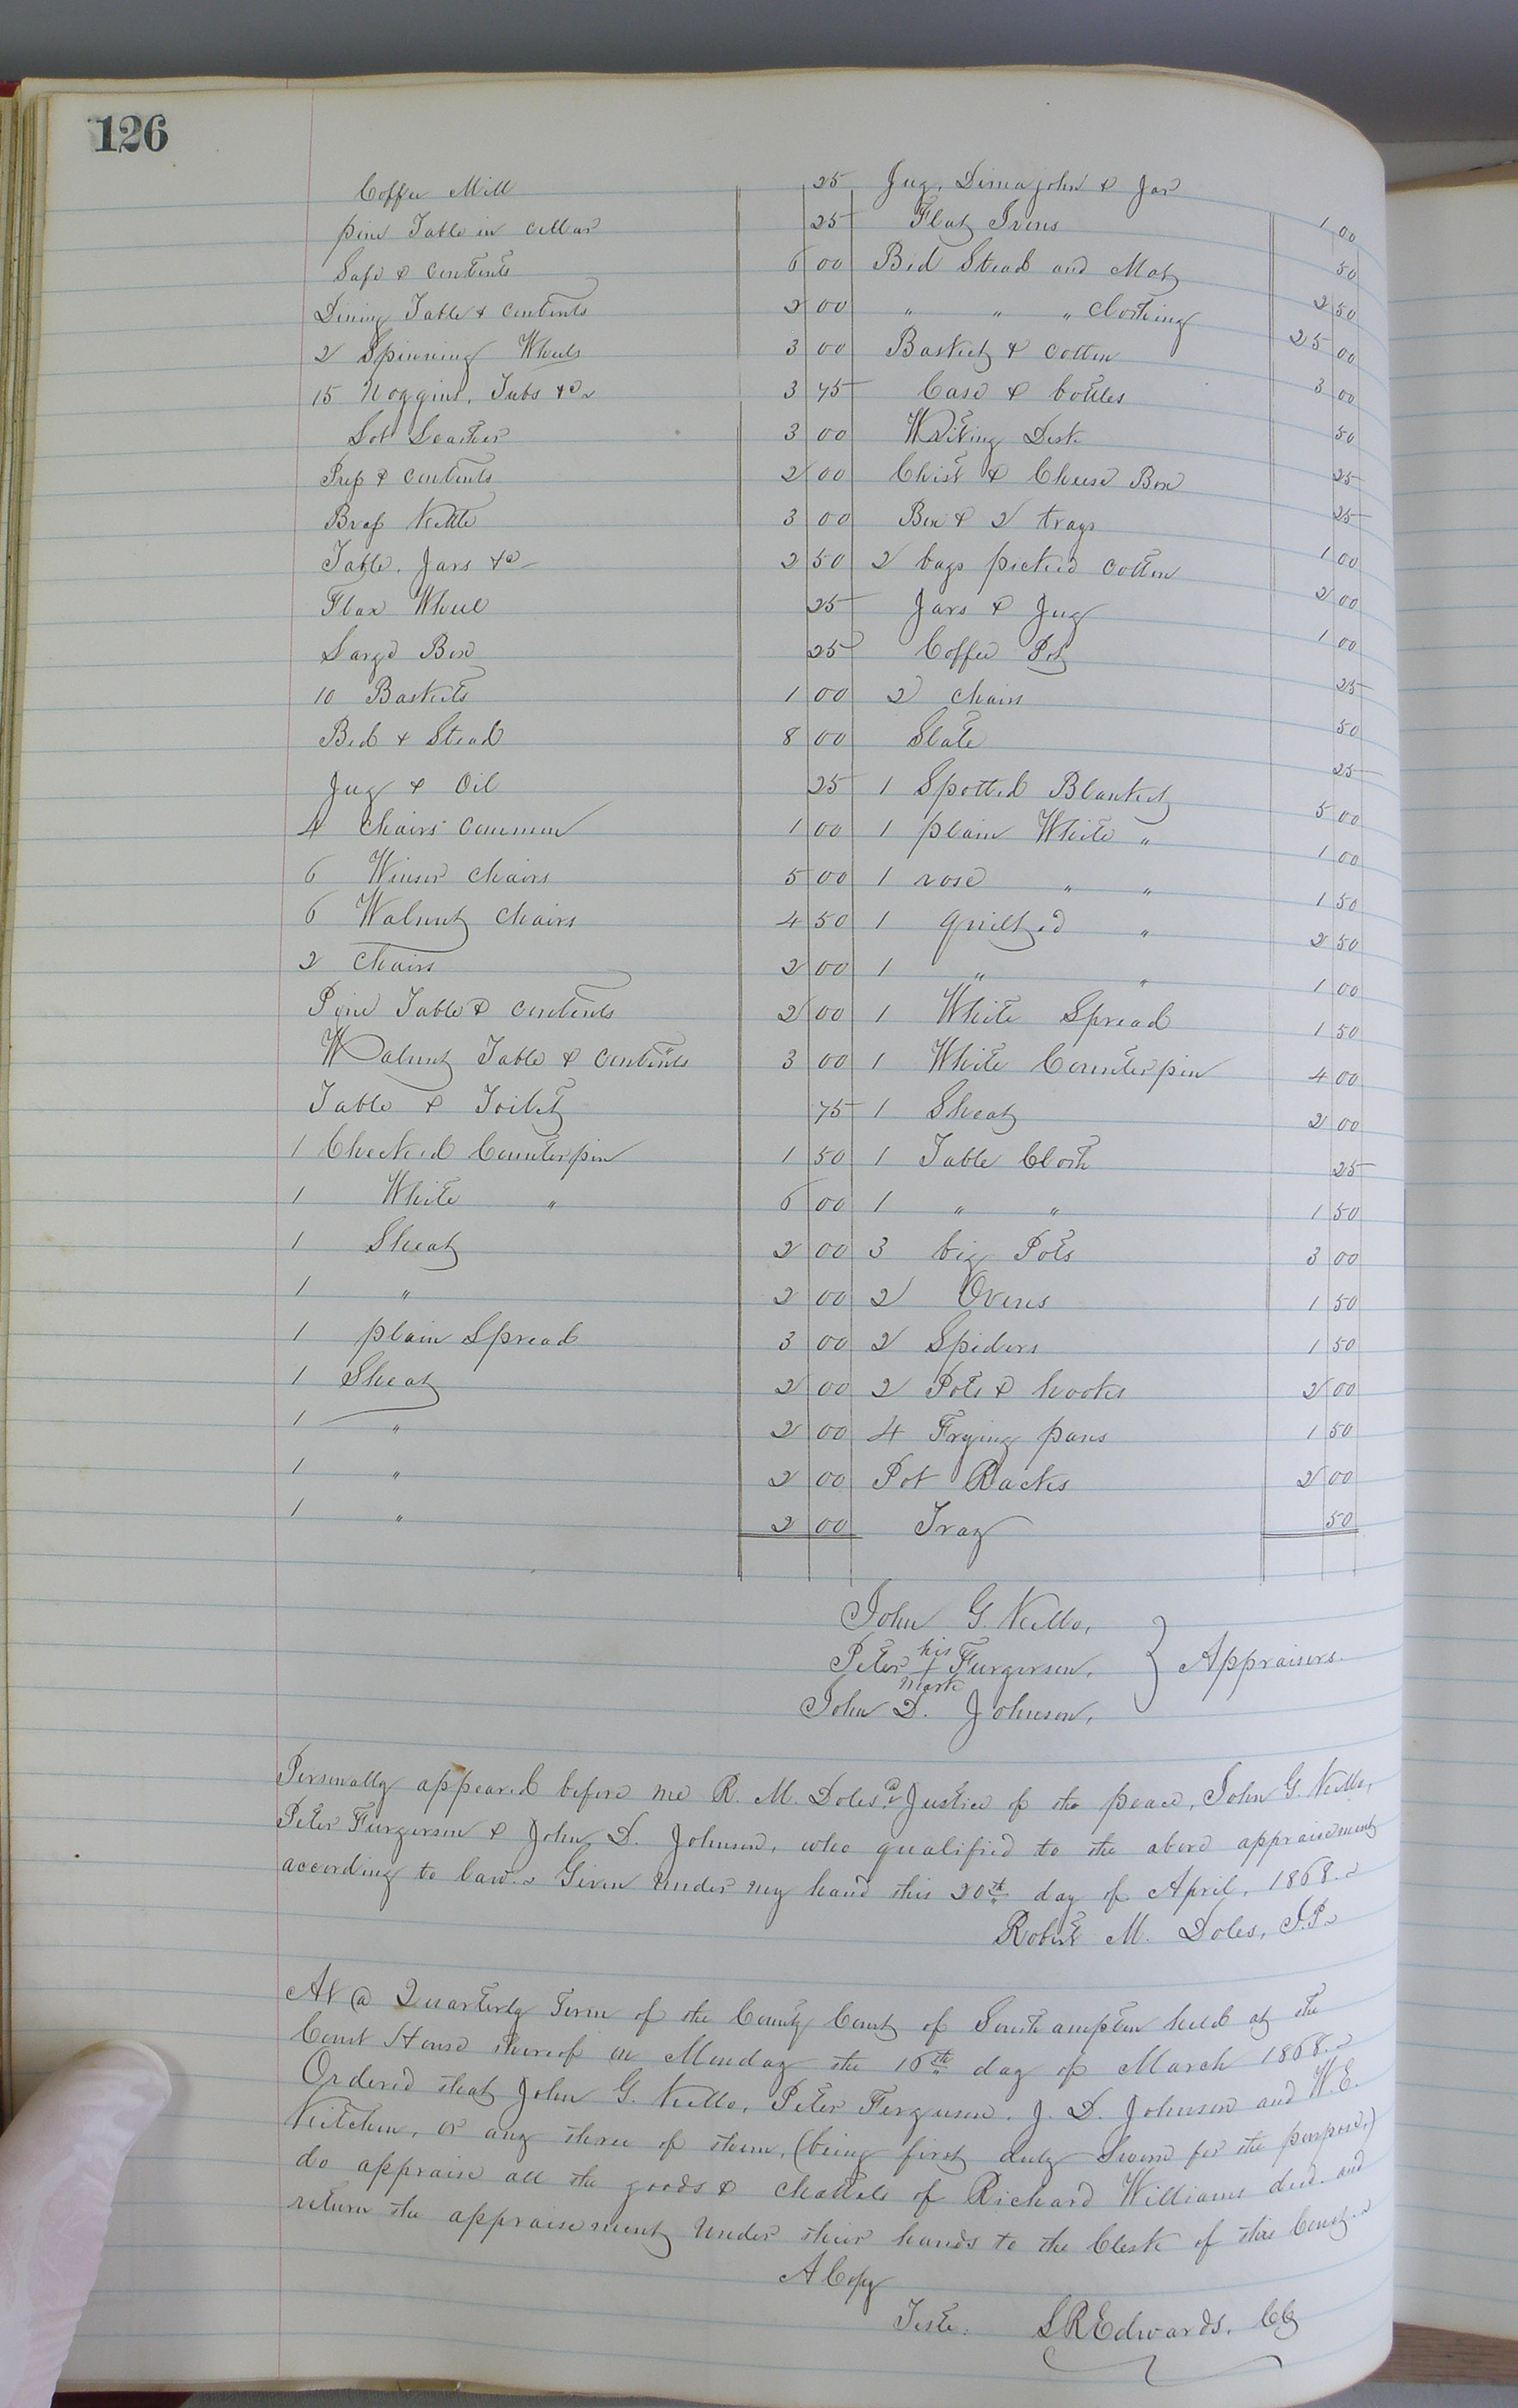 126
Coffee Mill 25 Jug, Dimajohn & Jar 1 00
pine Table in cellar 25 Flat Irons 50
Safe & contents 6 00 Bed Stead and Mat 2 50
Dining Table & contents 2 00 " " " clothing 25 00
2 Spinning Wheels 3 00 Basket & cotton 3 00
15 Noggins, Tubs &c 3 75 Case & bottles 50
Lot Leather 3 00 Writing Desk 25
& contents 2 00 Chist & Cheese Box 25
Brass Kettle 3 00 Box & 2 trays 1 00
Table, Jars &c 2 50 2 bags picked cotton 2 00
Flax Wheel 25 Jars & Jug 1 00
Large Box 25 Coffee Pot 25
10 Baskets 1 00 2 chairs 50
Bed & Stead 8 00 Slate 25
Jug & Oil 25 1 Spotted Blanket 5 00
4 chairs common 1 00 1 plain White " 1 00
6 Winsor chairs 5 00 1 rose " " 1 50
6 Walnut chairs 4 50 1 quilted " 2 50
2 chairs 2 00 1 " " 1 00
Pine Table & contents 2 00 1 White Spread 1 50
Walnut Table & contents 3 00 1 White Counterpin 4 00
Table & Toilet 75 1 Sheat 2 00
1 Checked Counterpin 1 50 1 Table Cloth 25
1 White " 6 00 1 " " 1 50
1 Sheat 2 00 3 big Pots 3 00
1 " 2 00 2 Ovens 1 50
1 plain Spread 3 00 2 Spiders 1 50
1 Sheat 2 00 2 Pots & hooks 2 00
1 " 2 00 4 Frying pans 1 50
1 " 2 00 Pot Racks 2 00
1 " 2 00 Tray 50
John G. Kello,
Peter his + mark Furgerson, } Appraisers.
John D. Johnson,
Personally appeared before me R. M. Doles, a Justice of the peace, John G. Kello,
Peter Furgerson & John D. Johnson, who qualified to the above appraisement
according to law. Given under my hand this 20th day of April, 1868.
Robert M. Doles, J.P.
At a Quarterly Term of the County Court of Southampton held at the
Court House thereof on Monday the 16th day of March 1868.
Ordered that John G. Kello, Peter Ferguson, J. D. Johnson and W. E.
Kitchen, or any three of them, (being first duly Sworn for the purpose,)
do appraise all the goods & chattels of Richard Williams decd. and
return the appraisement under their hands to the Clerk of this Court.
A Copy
Teste: L R Edwards, CC